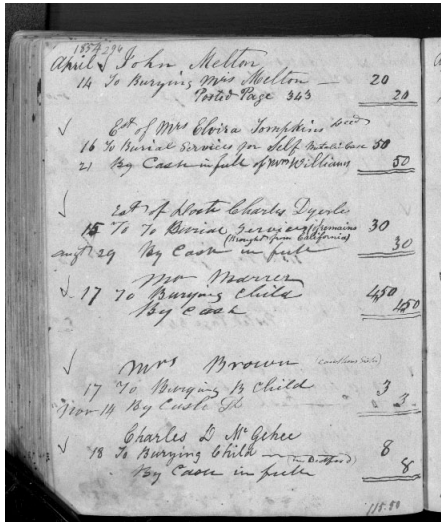 1854 296
April John Melton
14 To Burying Mrs Melton — 20
Posted Page 343 20
Est of Mrs Elvira Tompkins Decd
16 To Burial Services for Self Metalic Case 50
21 By Cash in full of Wm Williams 50
Est of Doctr Charles
15 To To Burial Services (remains 30
Brought from California)
Augt 29 By Cash in full 30
Mr Marrer
17 To Burying Child 4,50
By Cash 4,50
Mrs Brown
17 To Burying B Child 3
Nov 14 By Cash 3
Charles D McGehee
18 To Burying Child — 8
By Cash in full 8
115.50